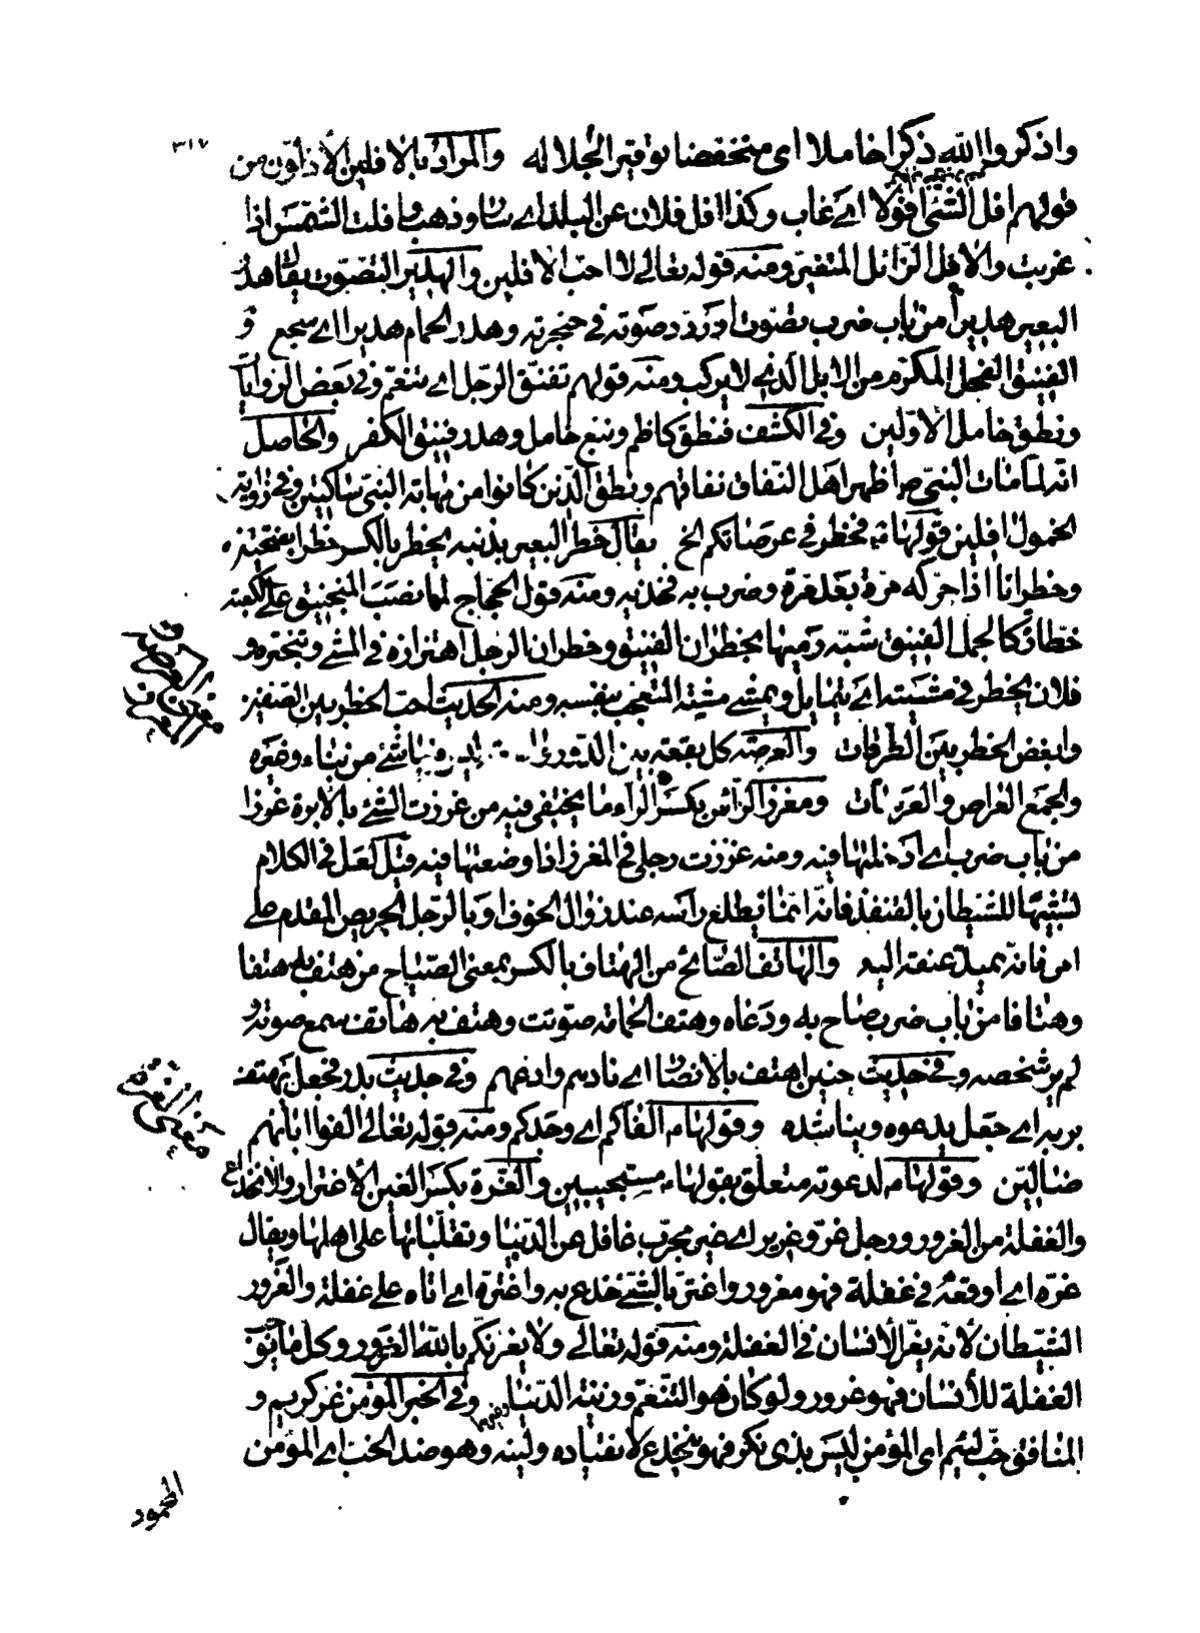 ٣١٧
واذكروا الله ذكرا خاملا اى منخفضا توقيرا لجلاله والمراد بالافلين الأذلون من
قولهم افل الشئ افولا اى غاب وكذا افل فلان عن البلد اى سار وذهب وافلت الشمس اذا
غربت والافل الزائل المتغير ومنه قوله تعالى لا احب الافلين والهدير التصويت يقال هدر
البعير هديرا من باب ضرب تصوت اى ردد صوته فى حنجرته وهدر الحمام هديرا اى سجع و
الفنيق الفحل المكرم من الابل الذى لا يركب ومنه قولهم تفنق الرجل اى تنعم وفى بعض الروايات
ونطق خامل الأولين وفى الكشف فنطق كاظم ونبغ خامل وهدر فنيق الكفر والحاصل
انه لما مات النبى ص أظهر اهل النفاق نفاقهم ونطق الذين كانوا من مهابة النبى ساكتين وفى زاوية
الخمول افلين قولها ع فخطر فى عرصاتكم الخ يقال خطر البعير بذنبه يخطر بالكسر خطرا
وخطرانا اذا حركه مرة بعد مرة وضرب به فخذيه ومنه قول الحجاج لما نصب المنجنيق على الكعبة
خطارة كالجمل الفنيق شبه رميها بخطران الفنيق وخطران الرجل اهتزازه فى المشى وتبختره و
فلان يخطر فى مشيته اى يتمايل ويمشى مشية المتعجب بنفسه ومنه الحديث احب الخطر بين الصفين
وابغض الخطر بين الطرقات والعرصة كل بقعة بين الدور ليس فيها شئ من بناء وغيره
والجمع العراص والعرصات ومغرز الرأس بكسر الراء ما يختفى فيه من غرزت الشئ بالابرة غرزا
من باب ضرب اى ادخلتها فيه ومنه غرزت رجلى فى المغرز اذا وضعتها فيه قيل لعل فى الكلام
تشبيها للشيطان بالقنفذ فانه انما يطلع رأسه عند زوال الخوف او بالرجل الحريص المقدم على
امر فانه يميل عنقه اليه والهاتف الصائح من الهتاف بالكسر بمعنى الصياح من هتف به هتفا
وهتافا من باب ضرب صاح به ودعاه وهتف الحمامة صوتت وهتف به هاتف سمع صوته و
لم ير شخصه وفى حديث حنين اهتف بالانصار اى نادهم وادعهم وفى حديث بدر فجعل يهتف
بربه اى جعل يدعوه ويناشده وقولها ع الفاكم اى وجدكم ومنه قوله تعالى الفوا اباءهم
ضالين وقولها ع لدعوته متعلق بقولها ع مستجيبين والغرة بكسر الغين الأغترار والانخداع
والغفلة من الغرور ورجل غر وغرير اى غير مجرب غافل عن الدنيا وتقلباتها على اهلها ويقال
غره اى اوقعه فى غفلة فهو مغرور واغتر بالشئ خدع به واغتره اى اتاه على غفلة والغرور
الشيطان لأنه يغر الأنسان فى الغفلة ومنه قوله تعالى ولا يغرنكم بالله الغرور وكل ما
الغفلة للأنسان فهو غرور ولو كان هو التنعم وزينة الدنيا وغيرها وفى الخبر المؤمن غر كريم و
المنافق خب لئيم اى المؤمن ليس بذى نكر فهو ينخدع لانقياده ولينه وهو ضد الخب اى المؤمن
معنى العرصة
معنى الغرة
المحمود